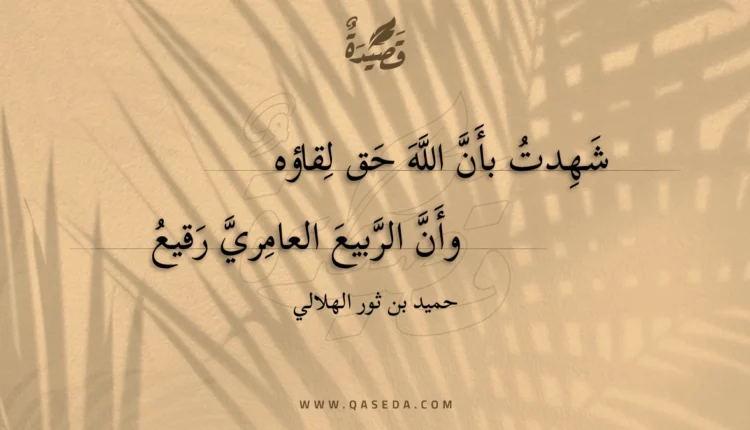 قَصِيدَةٌ
شَهِدتُ بأَنَّ اللَّهَ حَق لِقاؤه
وأَنَّ الرَّبيعَ العامِريَّ رَقيعُ
حميد بن ثور الهلالي
WWW.QASEDA.COM